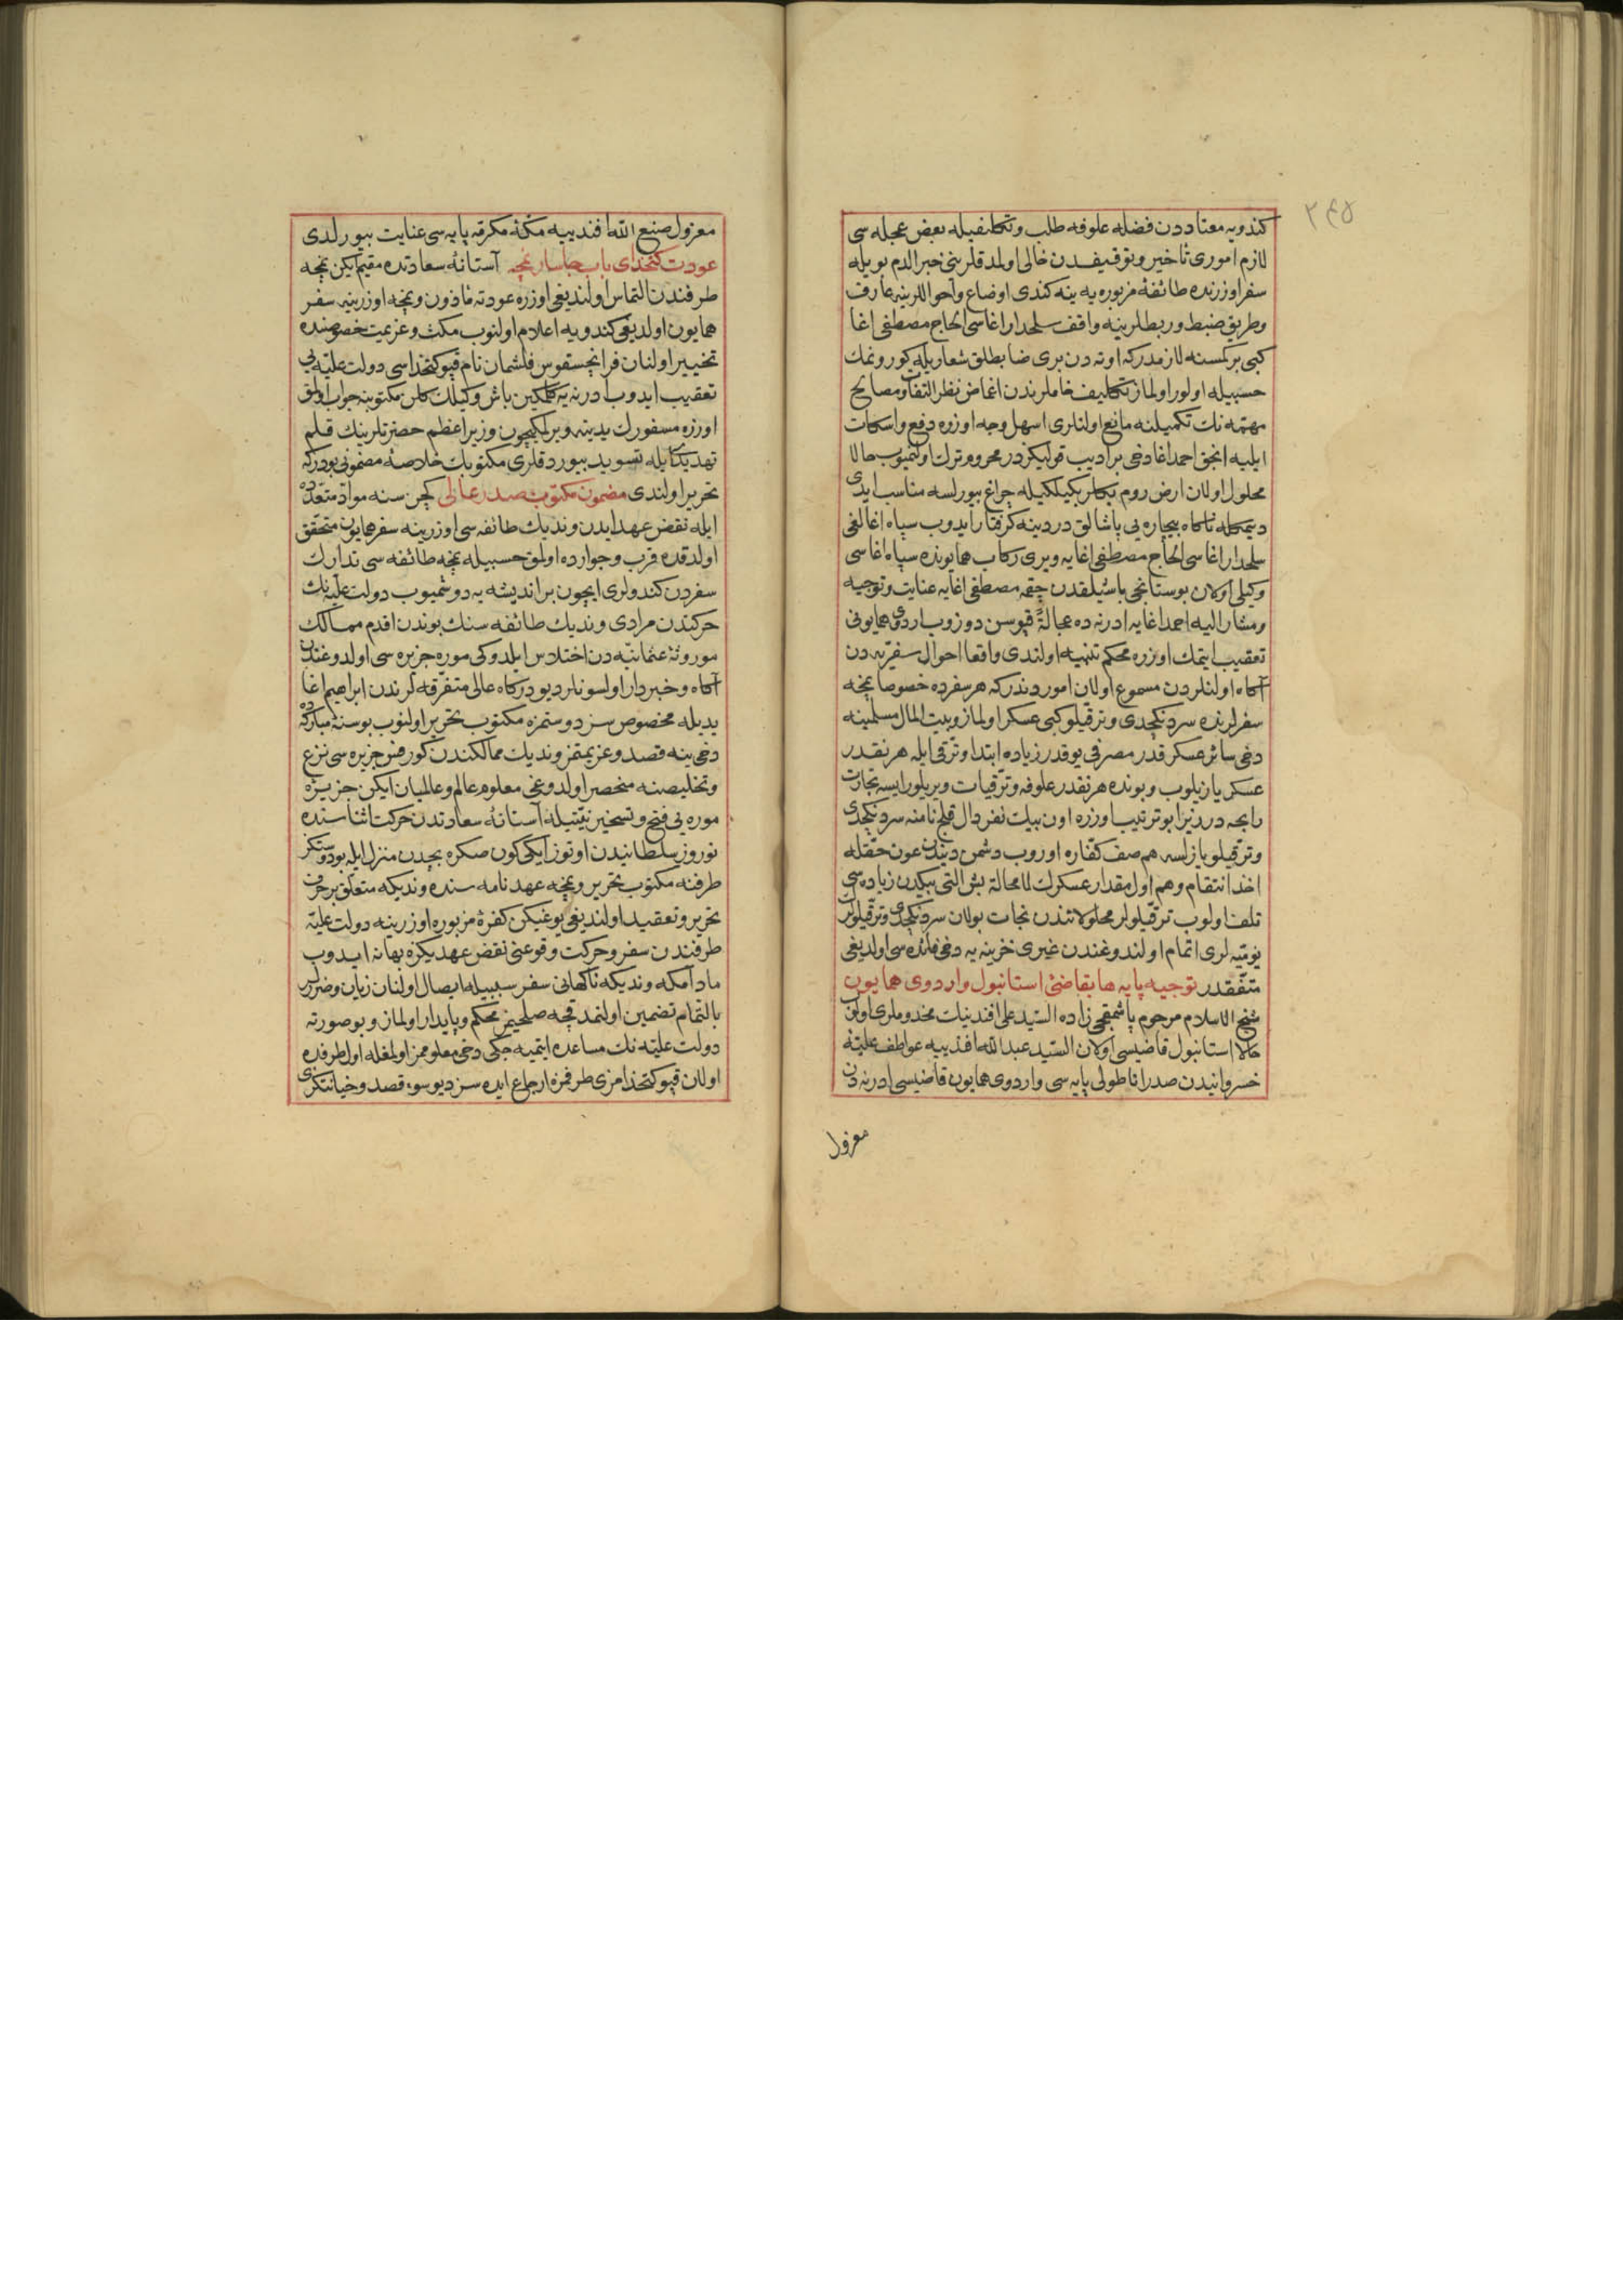 ٢٤٥
كندويه معتاددن فضله علوفه طلب وتكليفيله بعض عجله سى
لازم امورى تأخير وتوقيفدن خالى اولمدقلرينى خبر الدم بويله
سفر اوزرنده طائفۀ مزبوره يه ينه كندى اوضاع واحواللرينه عارف
وطريق ضبط وربطلرينه واقف سلحدار اغاسى الحاج مصطفى اغا
كبى بر كمسنه لازمدركه اوته دن برى ضابطلق شعاريله كورونمك
حسبيله اولور اولماز تكاليف خاملرندن اغماض نظر التفات ومصالح
مهمه نك تكميلنه مانع اولنلرى اسهل وجه اوزره دفع واسكات
ايليه انجق احمد اغا دخى بر اديب قولكزدر محروم ترك اولنميوب حالا
محلول اولان ارض روم بكلربكيلكيله چراغ بيورلسه مناسب ايدى
ديمكله ناكاه بيچاره يى پاشالق دردينه كرفتار ايدوب سپاه اغالغى
سلحدار اغاسى الحاج مصطفى اغايه ويرى ركاب همايونده سپاه اغاسى
وكيلى اولان بوستانجى باشيلقدن چقمه مصطفى اغايه عنايت وتوجيه
ومشار اليه احمد اغايه ادرنه ده عجالةً قپوسن دوزوب اردوى همايونى
تعقيب ايتمك اوزره محكم تنبيه اولندى واقعا احوال سفريه دن
آكاه اولنلردن مسموع اولان اموردندركه هر سفرده خصوصا نمچه
سفرلرنده سردنكچدى وترقيلو كبى عسكر اولماز وبيت المال مسلمينه
دخى سائر عسكر قدر مصرفى يوقدر زياده ابتدا وترقى ايله هر نقدر
عسكر يازيلوب وبونده هر نقدر علوفه وترقيات ويريلور ايسه تجارت
رابحه در زيرا بو ترتيب اوزره اون بيك نفر دال قلج نامنه سردنكچدى
وترقيلو يازلسه هم صف كفاره اوروب دشمن ديندن عون حقله
اخذ انتقام وهم اول مقدار عسكرك لا محالة بش التى بيكدن زياده سى
تلف اولوب ترقيلولر محلولاتندن نجات بولان سردنكچدى وترقيلولرك
يوميه لرى اتمام اولندوغندن غيرى خزينه يه دخى فائده سى اولديغى
متفقدر توجيه پايه ها بقاضئ استانبول واردوى همايون
شيخ الاسلام مرحوم پاشمقجى زاده السيد على افندينك مخدوملرى اولوب
حالا استانبول قاضيسى اولان السيد عبد الله افندييه عواطف عليۀ
خسروانيدن صدر اناطولى پايه سى واردوى همايون قاضيسى ادرنه دن
معزول
معزول صنع الله افندييه مكۀ مكرمه پايه سى عنايت بيورلدى
عودت كتخداى باب جاسار نمچه آستانۀ سعادتده مقيم ايكن نمچه
طرفندن التماس اولنديغى اوزره عودته مأذون ونمچه اوزرينه سفر
همايون اولديغى كندويه اعلام اولنوب مكث وعزيمت خصوصنده
تخيير اولنان فرانچسقوس فلشمان نام قپو كتخداسى دولت عليه يى
تعقيب ايدوب ادرنه يه كلمكين باش وكيلك كلن مكتوبنه جواب اولمق
اوزره مسفورك يدينه ويرلمكيچون وزير اعظم حضرتلرينك قلم
تهديد ايله تسويد بيوردقلرى مكتوبك خلاصۀ مضمونى بودركه
تحرير اولندى مضمون مكتوب صدر عالى كچن سنه مواد متعدده
ايله نقض عهد ايدن ونديك طائفه سى اوزرينه سفر همايون متحقق
اولدقده قرب وجوارده اولمق حسبيله نمچه طائفه سى تدارك
سفردن كندولرى ايچون بر انديشه يه دوشميوب دولت عليه نك
حركتندن مرادى ونديك طائفه سنك بوندن اقدم ممالك
موروثۀ عثمانيه دن اختلاس ايلدوكى موره جزيره سى اولدوغندن
آكاه وخبردار اولسونلر ديو دركاه عالى متفرقه لرندن ابراهيم اغا
يديله مخصوص سز دوستمزه مكتوب تحرير اولنوب بو سنۀ مباركه ده
دخى ينه قصد وعزيمتمز ونديك ممالكندن كورفس جزيره سى نزع
وتخليصنه منحصر اولدوغى معلوم عالم وعالميان ايكن جزيرۀ
موره يى فتح وتسخير نيتيله آستانۀ سعادتدن حركت اثناسنده
نوروز سلطانيدن اوتوز ايكى كون صكره بچدن منزل ايله بو دوستكز
طرفنه مكتوب تحرير ونمچه عهدنامه سنده ونديكه متعلق بر حرف
تحرير وتعقيد اولنديغى يوغيكن كفرۀ مزبوره اوزرينه دولت عليه
طرفندن سفر وحركت وقوعنى نقض عهديكزه بهانه ايدوب
مادامكه ونديكه ناكهانى سفر سببيله ايصال اولنان زيان وضررلر
بالتمام تضمين اولنمدقجه صلحيمز محكم وپايدار اولماز وبو صورته
دولت عليه نك مساعده ايتميه جكى دخى معلوممز اولمغله اول طرفده
اولان قپو كتخدامزى طرفمزه ارجاع ايده سز ديو سوء قصد وخيانتكزى